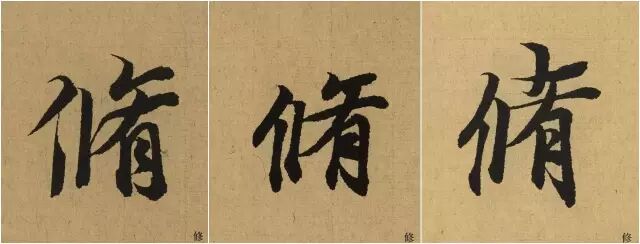 脩 脩 脩
修 修 修